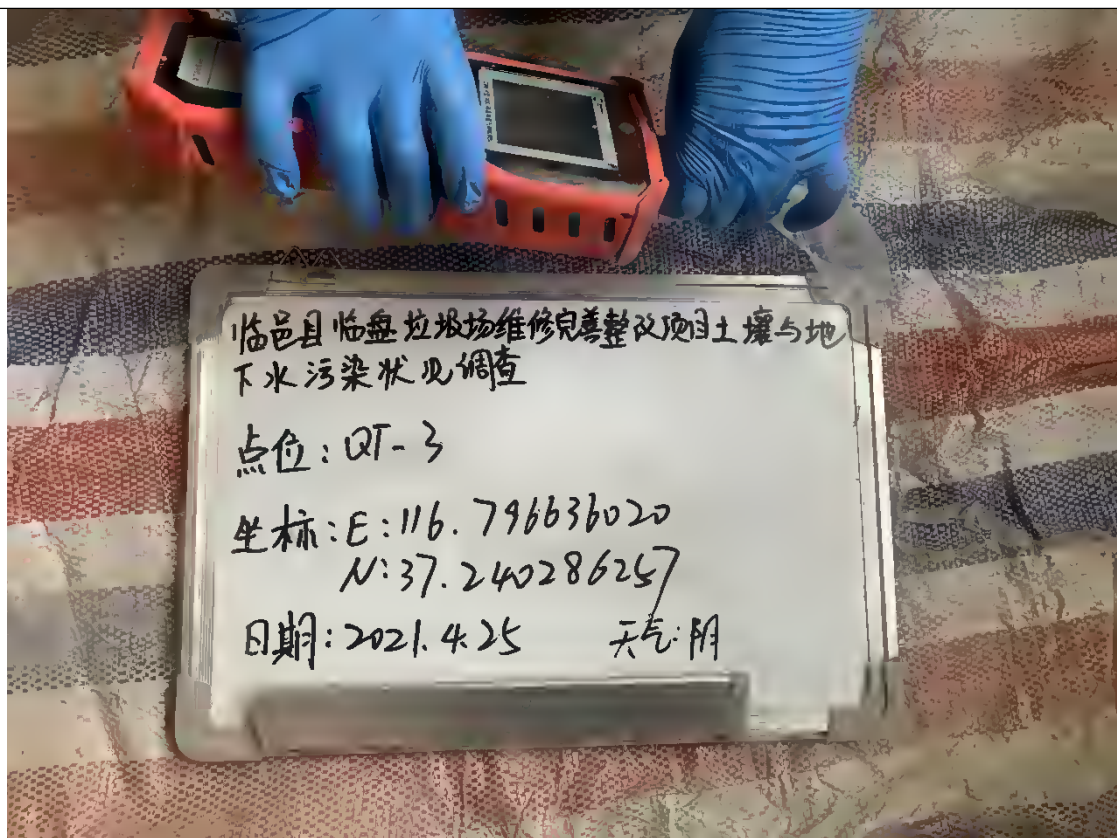 临邑县临盘垃圾场维修完善整改项目土壤与地
下水污染状况调查
点位:QT-3
坐标:E:116.796636020
N:37.240286257
日期:2021.4.25 天气:阴